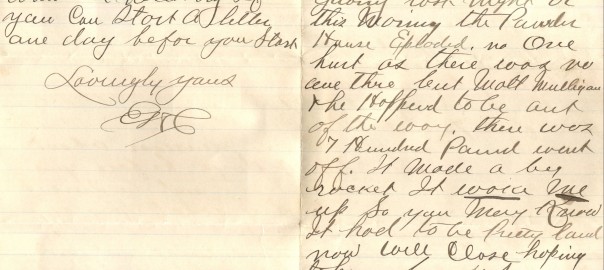 you Can Start A letter
one day befor you Start
Lovingly yours
last Night or
this Morning the Powder
House Eploded. no One
hurt as there was no
one thre but Walt Mulligan
& he Happend to be out
of the way. there was
7 Hundred Pound went
off. It Made a big
rocket It woke Me
up So you May Know
it had to be Pretty loud
now will Close hoping